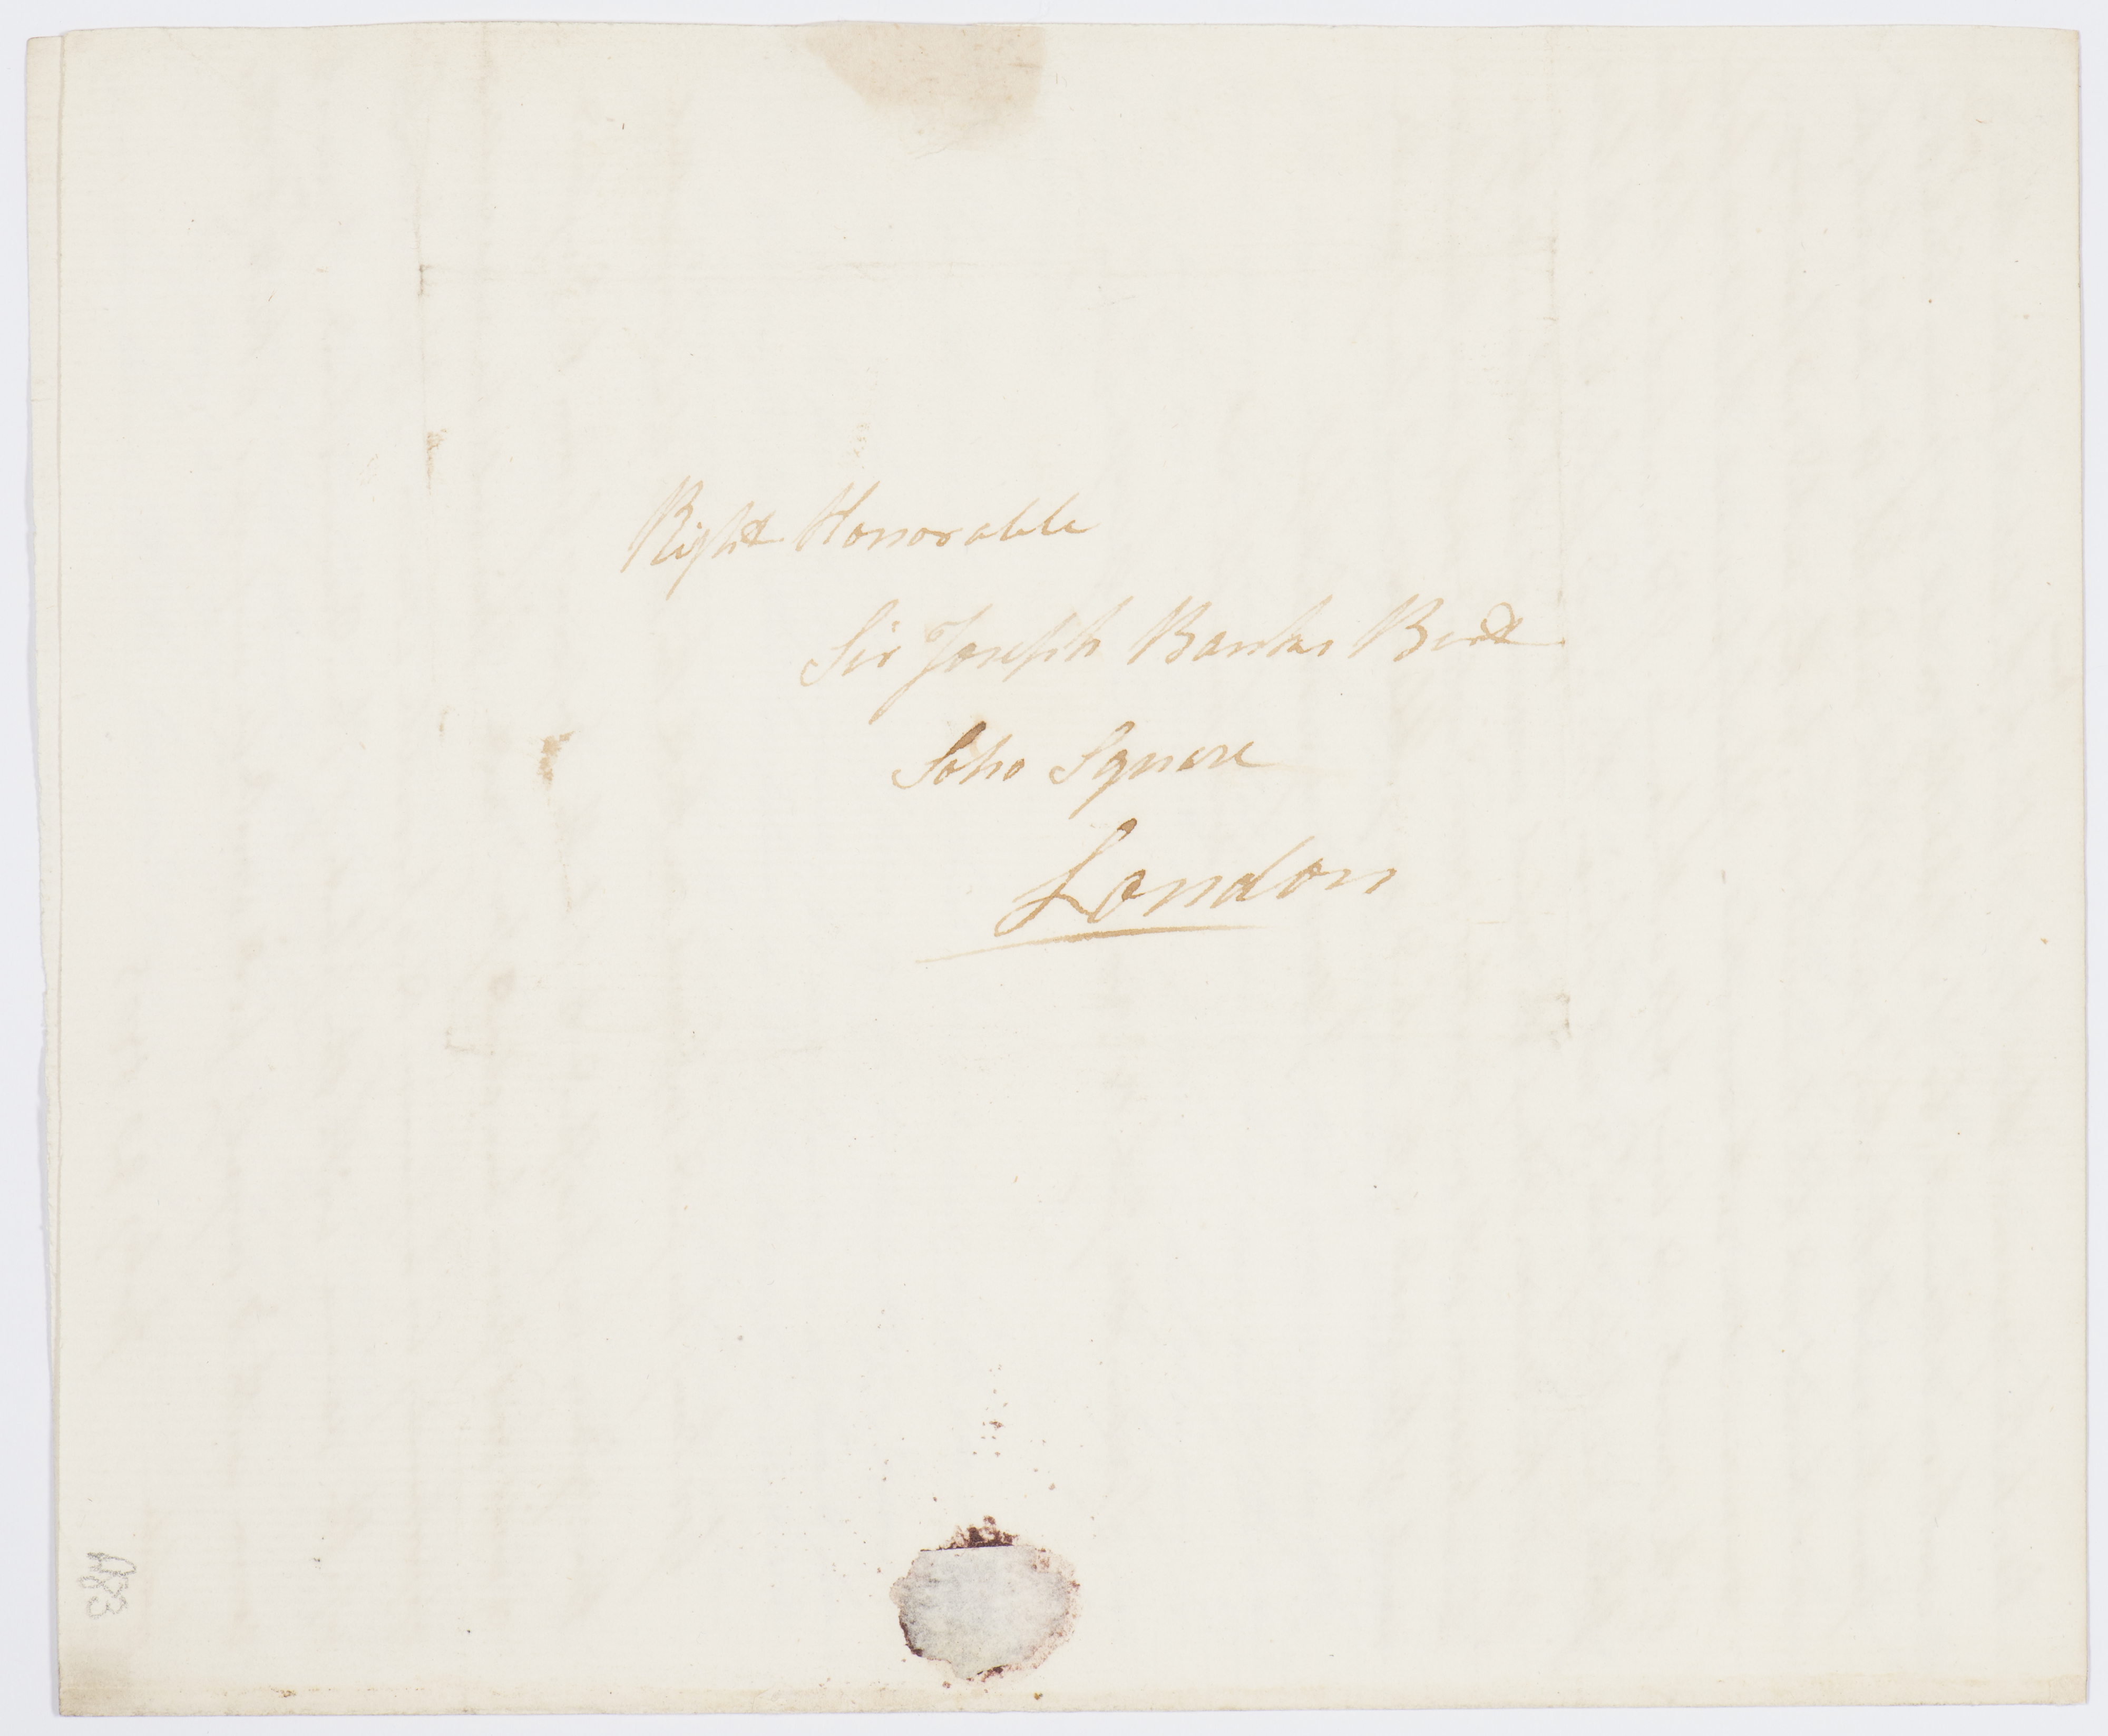 Right Honorable
Sir Joseph Banks Bart
Soho Square
London